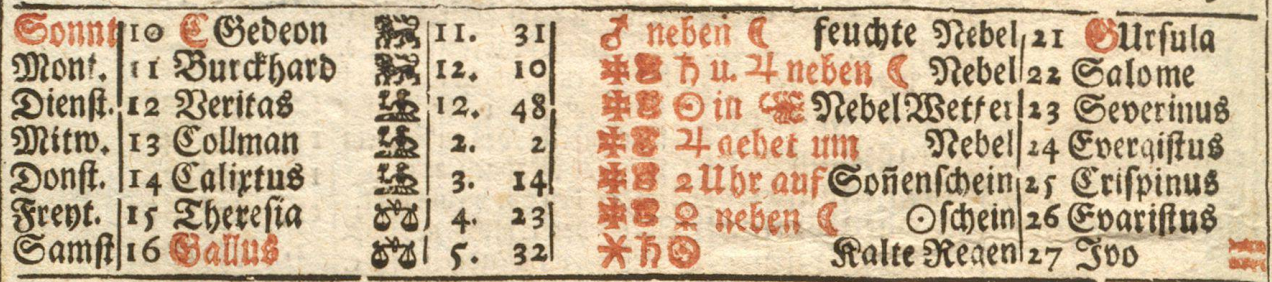 Sonnt 10 C Gedeon 11. 31 ♂ neben ☾ feuchte Nebel 21 G Ursula
Mont. 11 Burckhard 12. 10 ♄ u. ♃ neben ☾ Nebel 22 Salome
Dienst. 12 Veritas 12. 48 ☉ in ♏ Nebel Wetter 23 Severinus
Mitw. 13 Collman 2. 2 ♃ gehet um Nebel 24 Evergistus
Donst. 14 Calixtus 3. 14 2 Uhr auf Soñenschein 25 Crispinus
Freyt. 15 Theresia 4. 23 ♀ neben ☾ ☉schein 26 Evaristus
Samst 16 Gallus 5. 32 ⚹ ♄ ☉ Kalte Regen 27 Ivo